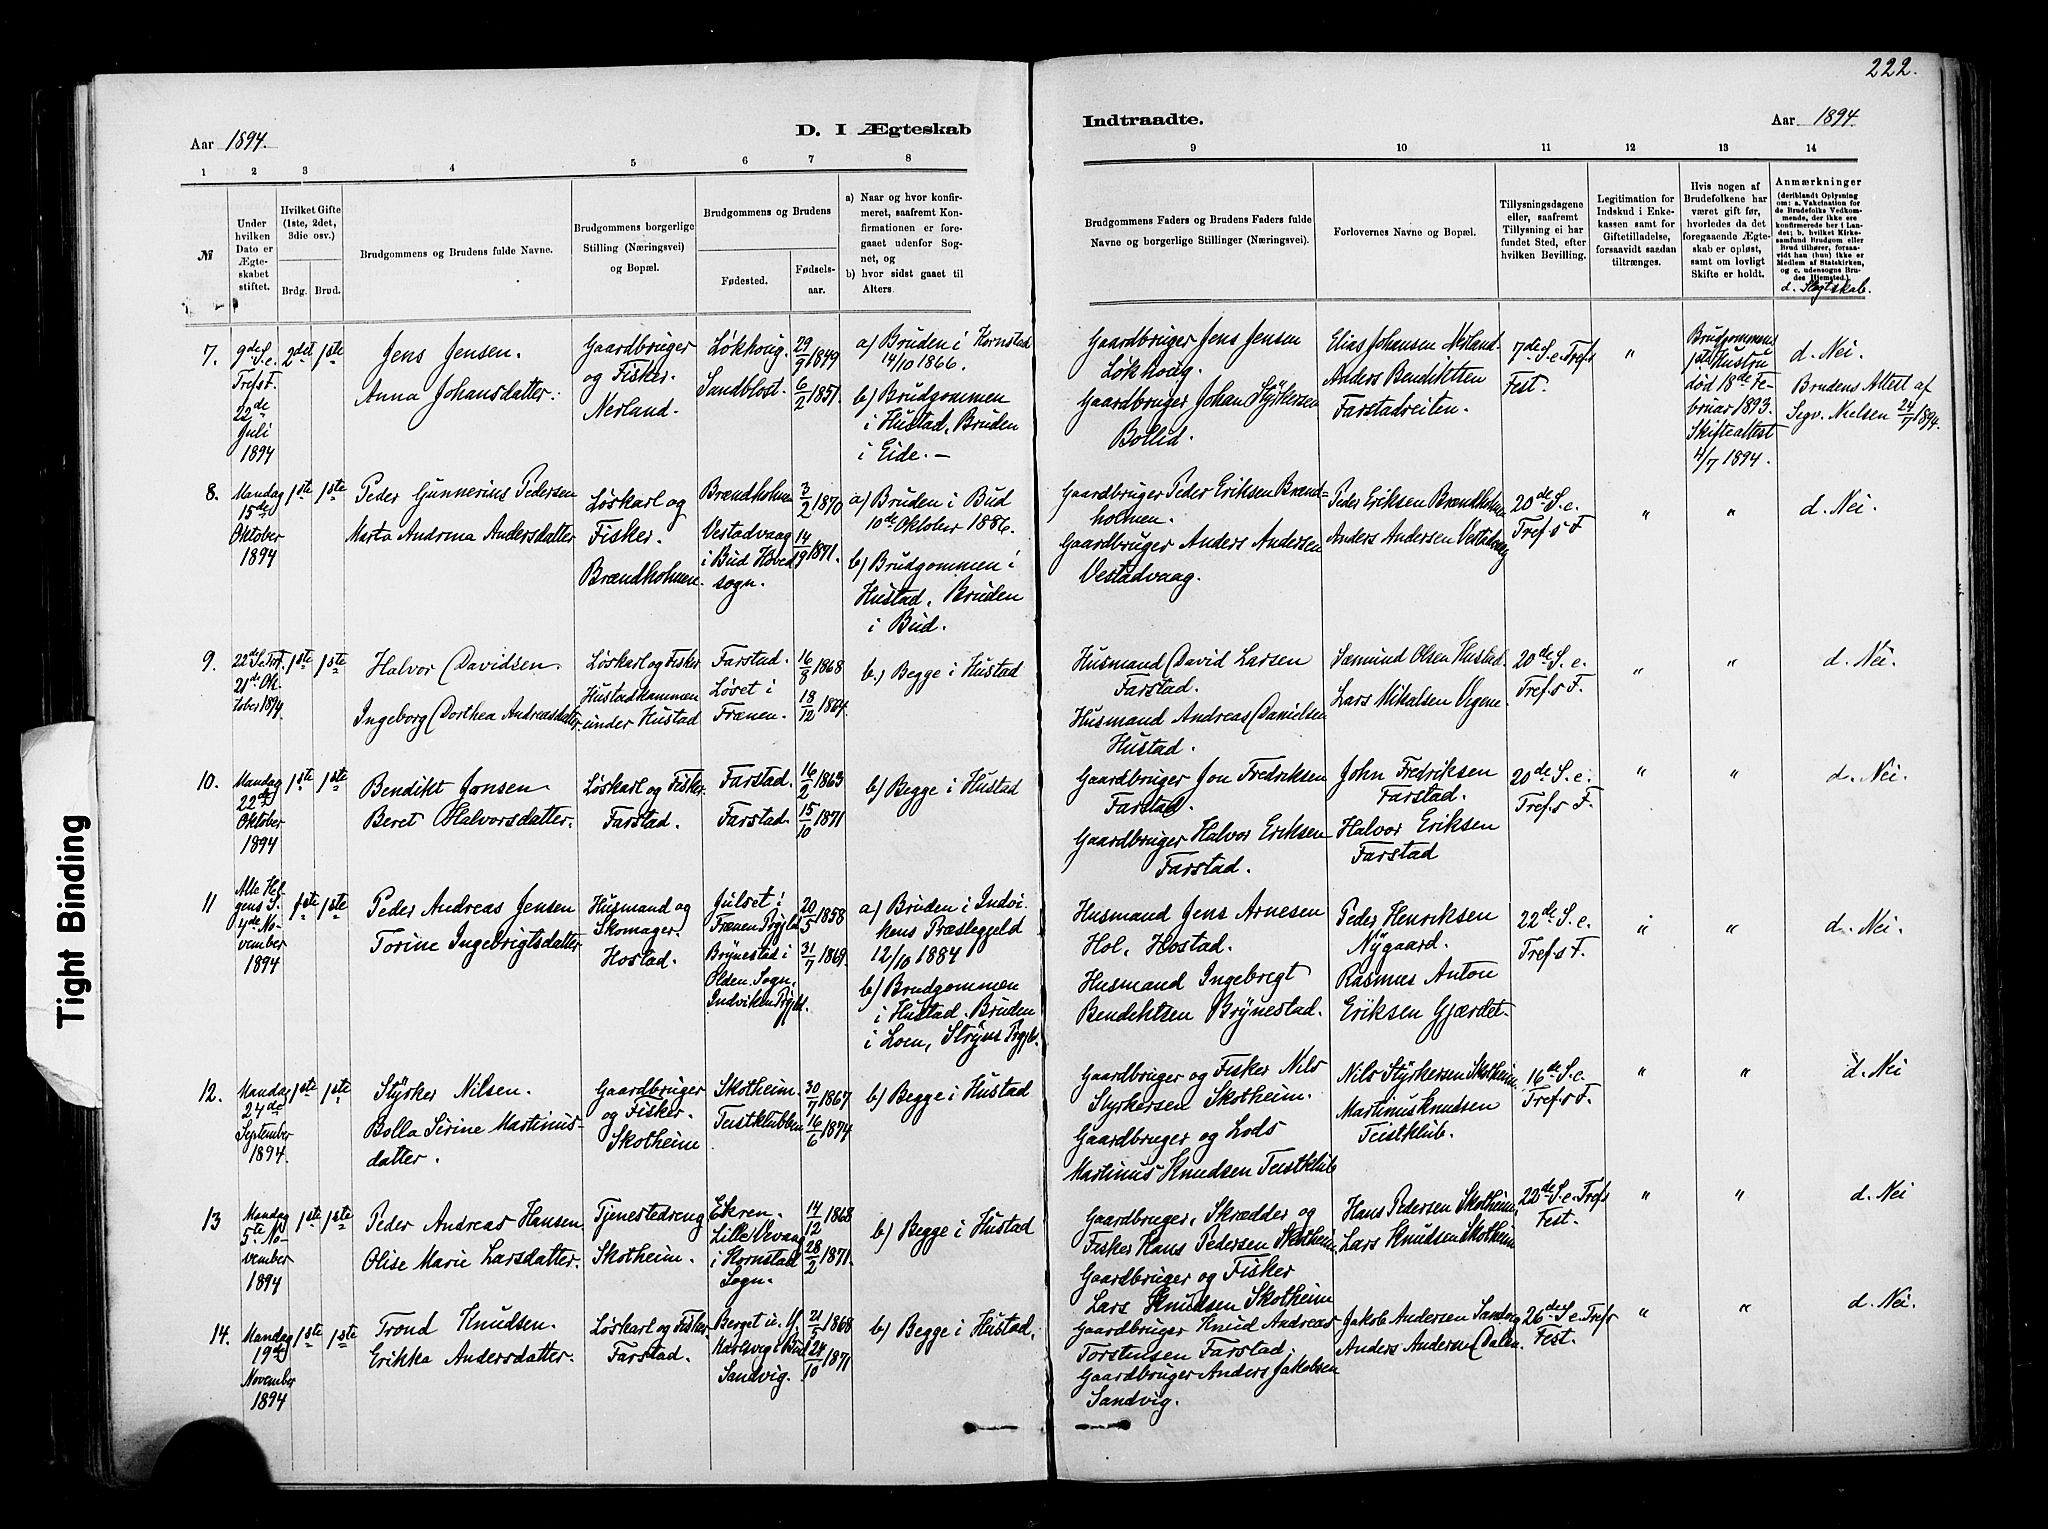 222.
Aar 1894.
D. I Ægteskab
Indtraadte.
Aar 1894.
1 2 3 4 5 6 7 8
9 10 11 12 13 14
№
Under hvilken Dato er Ægteskabet stiftet.
Hvilket Gifte (1ste, 2det, 3die osv.)
Brdg. Brud.
Brudgommens og Brudens fulde Navne.
Brudgommens borgerlige Stilling (Næringsvei) og Bopæl.
Brudgommens og Brudens
Fødested.
Fødsels-aar.
a) Naar og hvor konfirmeret, saafremt Konfirmationen er foregaaet udenfor Sognet, og
b) hvor sidst gaaet til Alters.
Brudgommens Faders og Brudens Faders fulde Navne og borgerlige Stillinger (Næringsvei).
Forlovernes Navne og Bopæl.
Tillysningsdagene eller, saafremt Tillysning ei har fundet Sted, efter hvilken Bevilling.
Legitimation for Indskud i Enkekassen samt for Giftetilladelse, forsaavidt saadan tiltrænges.
Hvis nogen af Brudefolkene har været gift før, hvorledes da det foregaaende Ægteskab er opløst, samt om lovligt Skifte er holdt.
Anmærkninger
(deriblandt Oplysning om: a. Vakcination for de Brudefolks Vedkommende, der ikke ere konfirmerede her i Landet; b. hvilket Kirkesamfund Brudgom eller Brud tilhører, forsaavidt han (hun) ikke er Medlem af Statskirken, og c. udensogns Brudes Hjemsted.)
d. Slegtskab.
7.
9de S. e. Tref. F. 22de Juli 1894
2det 1ste
Jens Jensen.
Anna Johansdatter.
Gaardbruger og Fisker. Nerland.
Løkhoug.
Sandblost.
29/9 1849
6/2 1851.
a) Bruden i Kornstad 14/10 1866.
b) Brudgommen i Hustad, Bruden i Eide.
Gaardbruger Jens Jensen Løkhoug.
Gaardbruger Johan Styrkersen Bollid.
Elias Johansen Nerland.
Anders Bendiktsen Farstadreiten.
7de S. e. Tref.s Fest.
"
Brudgommens 1ste Hustru død 18de Februar 1893. Skifteattest 4/7 1894.
d. Nei.
Brudens Attest af Sogv. Nielsen 24/7 1894.
8.
Mandag 15de Oktober 1894
1ste 1ste
Peder Gunnerius Pedersen
Marta Andrina Andersdatter
Løskarl og Fisker. Brændholmen.
Brændholmen
Vestadvaag i Bud Hovedsogn.
3/2 1870
14/9 1871.
a) Bruden i Bud 10de Oktober 1886.
b) Brudgommen i Hustad, Bruden i Bud.
Gaardbruger Peder Eriksen Brændholmen.
Gaardbruger Anders Andersen Vestadvaag.
Peder Eriksen Brændholmen
Anders Andersen Vestadvaag
20de S. e. Tref.s F.
" "
d. Nei.
9.
22de S. e. Tref. 21de Oktober 1894
1ste 1ste
Halvor Davidsen.
Ingeborg Dorthea Andreasdatter.
Løskarl og Fisker Hustadhammen under Hustad
Farstad.
Løvet i Frænen.
16/8 1868
18/12 1864.
b.) Begge i Hustad
Husmand David Larsen Farstad.
Husmand Andreas Danielsen Hustad.
Sæmund Olsen Hustad.
Lars Mikalsen Vigene.
20de S. e. Tref.s F.
" "
d. Nei.
10.
Mandag 22de Oktober 1894
1ste 1ste
Bendikt Jonsen.
Beret Halvorsdatter.
Løskarl og Fisker. Farstad.
Farstad.
Farstad.
16/2 1863
15/10 1871
b) Begge i Hustad
Gaardbruger Jon Fredriksen Farstad.
Gaardbruger Halvor Eriksen Farstad.
John Fredriksen Farstad.
Halvor Eriksen Farstad
20de S. e. Tref.s F.
" "
d. Nei.
11
Alle Helgens S. 4de November 1894
1ste 1ste
Peder Andreas Jensen
Torine Ingebrigtsdatter
Husmand og Skomager. Hostad.
Julset i Frænen Prgjld
Brynestad i Olden Sogn, Indviken Prgjld.
20/5 1858
31/7 1869.
a) Bruden i Indvikens Præstegjeld 12/10 1884
b) Brudgommen i Hustad. Bruden i Loen, Stryns Prgjld.
Husmand Jens Arnesen Hol, Hostad.
Husmand Ingebregt Bendiktsen Brynestad.
Peder Henriksen Nygaard.
Rasmus Anton Eriksen Gjærdet.
22de S. e. Tref.s F.
" "
d. Nei.
12.
Mandag 24de September 1894.
1ste 1ste
Styrker Nilsen.
Bolla Sirine Martinusdatter.
Gaardbruger og Fisker. Skotheim
Skotheim.
Teistklubben
30/7 1867
16/6 1874
b) Begge i Hustad
Gaardbruger og Fisker Nils Styrkersen Skotheim.
Gaardbruger og Lods Martinus Knudsen Teistklub
Nils Styrkersen Skotheim.
Martinus Knudsen Teistklub.
16de S. e. Tref.s F.
" "
d. Nei
13
Mandag 5te November 1894
1ste 1ste
Peder Andreas Hansen
Olise Marie Larsdatter.
Tjenestedreng Skotheim.
Ekren.
Lille Vevang i Kornstad Sogn.
14/12 1868
28/2 1871.
b) Begge i Hustad
Gaardbruger, Skrædder og Fisker Hans Pedersen Skotheim.
Gaardbruger og Fisker Lars Knudsen Skotheim
Hans Pedersen Skotheim.
Lars Knudsen Skotheim
22de S. e. Tref.s Fest.
" "
d. Nei
14.
Mandag 19de November 1894
1ste 1ste
Trond Knudsen.
Erikka Andersdatter.
Løskarl og Fisker Farstad.
Berget u. Harksvig i Bud
Sandvig.
21/5 1868
24/10 1871
b) Begge i Hustad.
Gaardbruger Knud Andreas Torstensen Farstad.
Gaardbruger Anders Jakobsen Sandvig.
Jakob Andersen Sandvig
Anders Andersen Dalen.
26de S. e. Tref.s Fest.
" "
d. Nei.
Tight Binding